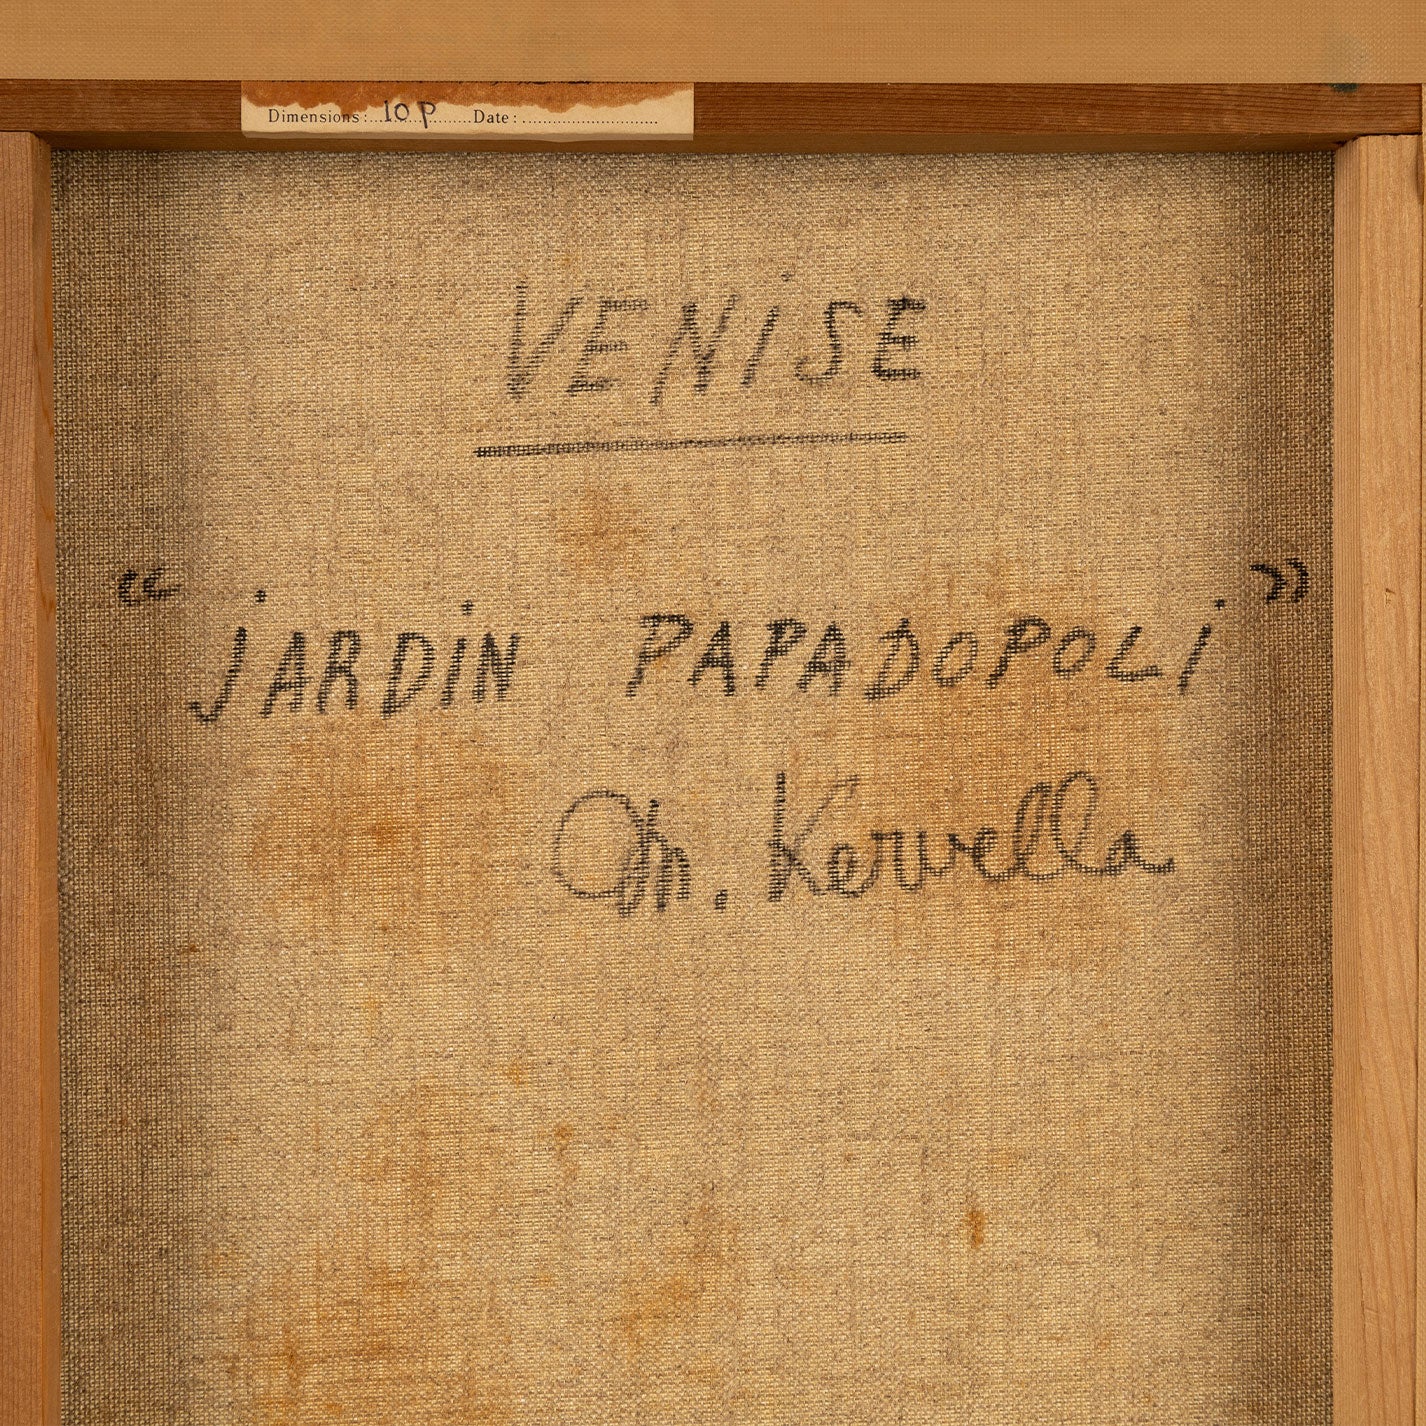 Dimensions: 10 P Date:
VENiSE
“ jARDiN PAPADOPOLi ”
Ch. Kervella